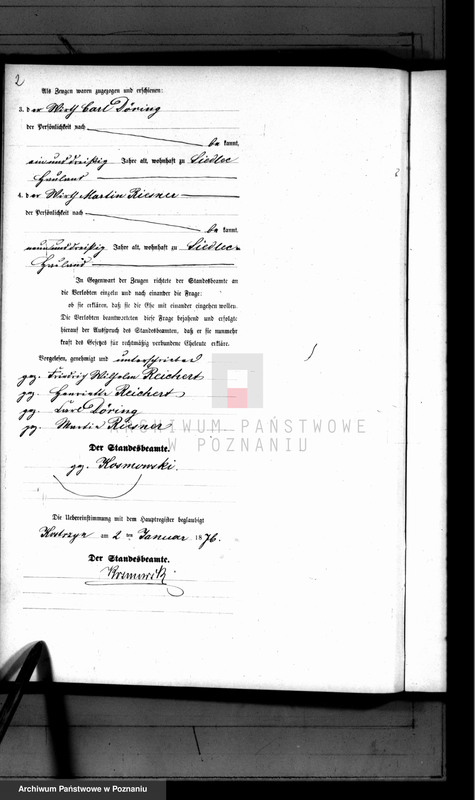 2
Als Zeugen waren zugezogen und erschienen:
3. der Wirth Carl Döring
der Persönlichkeit nach
be kannt,
einunddreißig Jahre alt, wohnhaft zu Siedlec
Hauland
4. der Wirth Martin Riesner
der Persönlichkeit nach
be kannt,
neununddreißig Jahre alt, wohnhaft zu Siedlec
Hauland
In Gegenwart der Zeugen richtete der Standesbeamte an
die Verlobten einzeln und nach einander die Frage:
ob sie erklären, daß sie die Ehe mit einander eingehen wollen.
Die Verlobten beantworteten diese Frage bejahend und erfolgte
hierauf der Ausspruch des Standesbeamten, daß er sie nunmehr
kraft des Gesetzes für rechtmäßig verbundene Eheleute erkläre.
Vorgelesen, genehmigt und unterschrieben
gez. Friedrich Wilhelm Reichert
gez. Henriette Reichert
gez. Carl Döring
gez. Martin Riesner
ARCHIWUM PAŃSTWOWE
W POZNANIU
Der Standesbeamte.
gez. Kosmowski.
Die Uebereinstimmung mit dem Hauptregister beglaubigt
Kostrzyn am 2 ten Januar 1876.
Der Standesbeamte.
Archiwum Państwowe w Poznaniu